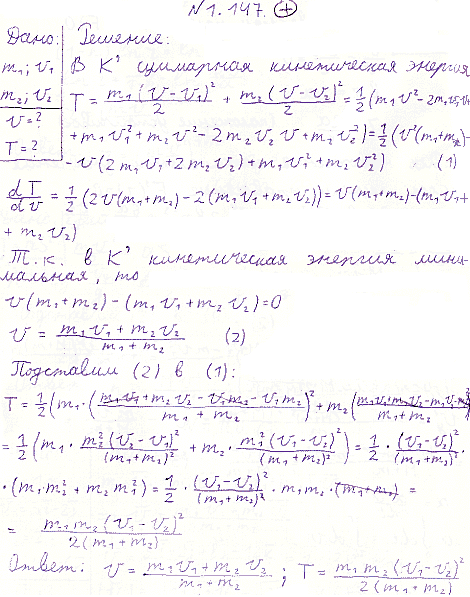 № 1.147. (+)
Дано: Решение:
m₁; v₁ В K' сумарная кинетическая энергия
m₂; v₂ T = m₁(v-v₁)²/2 + m₂(v-v₂)²/2 = 1/2 (m₁v² - 2m₁v₁v
v = ? + m₁v₁² + m₂v² - 2m₂v₂v + m₂v₂²) = 1/2 (v²(m₁+m₂) -
T = ? - v(2m₁v₁ + 2m₂v₂) + m₁v₁² + m₂v₂²) (1)
dT/dv = 1/2 (2v(m₁+m₂) - 2(m₁v₁ + m₂v₂)) = v(m₁+m₂) - (m₁v₁ +
+ m₂v₂)
Т.к. в K' кинетическая энергия мини-
мальная, то
v(m₁+m₂) - (m₁v₁ + m₂v₂) = 0
v = (m₁v₁ + m₂v₂)/(m₁ + m₂) (2)
Подставим (2) в (1):
T = 1/2 (m₁ · ((m₁v₁ + m₂v₂ - v₁m₁ - v₁m₂)/(m₁ + m₂))² + m₂((m₁v₁ + m₂v₂ - m₁v₂ - m₂v₂)/(m₁ + m₂))²)
= 1/2 (m₁ · m₂²(v₂-v₁)²/(m₁+m₂)² + m₂ · m₁²(v₁-v₂)²/(m₁+m₂)²) = 1/2 · (v₁-v₂)²/(m₁+m₂)² ·
· (m₁m₂² + m₂m₁²) = 1/2 · (v₁-v₂)²/(m₁+m₂)² · m₁m₂ · (m₁+m₂) =
= m₁m₂(v₁-v₂)²/2(m₁+m₂)
Ответ: v = (m₁v₁ + m₂v₂)/(m₁+m₂) ; T = m₁m₂(v₁-v₂)²/2(m₁+m₂)